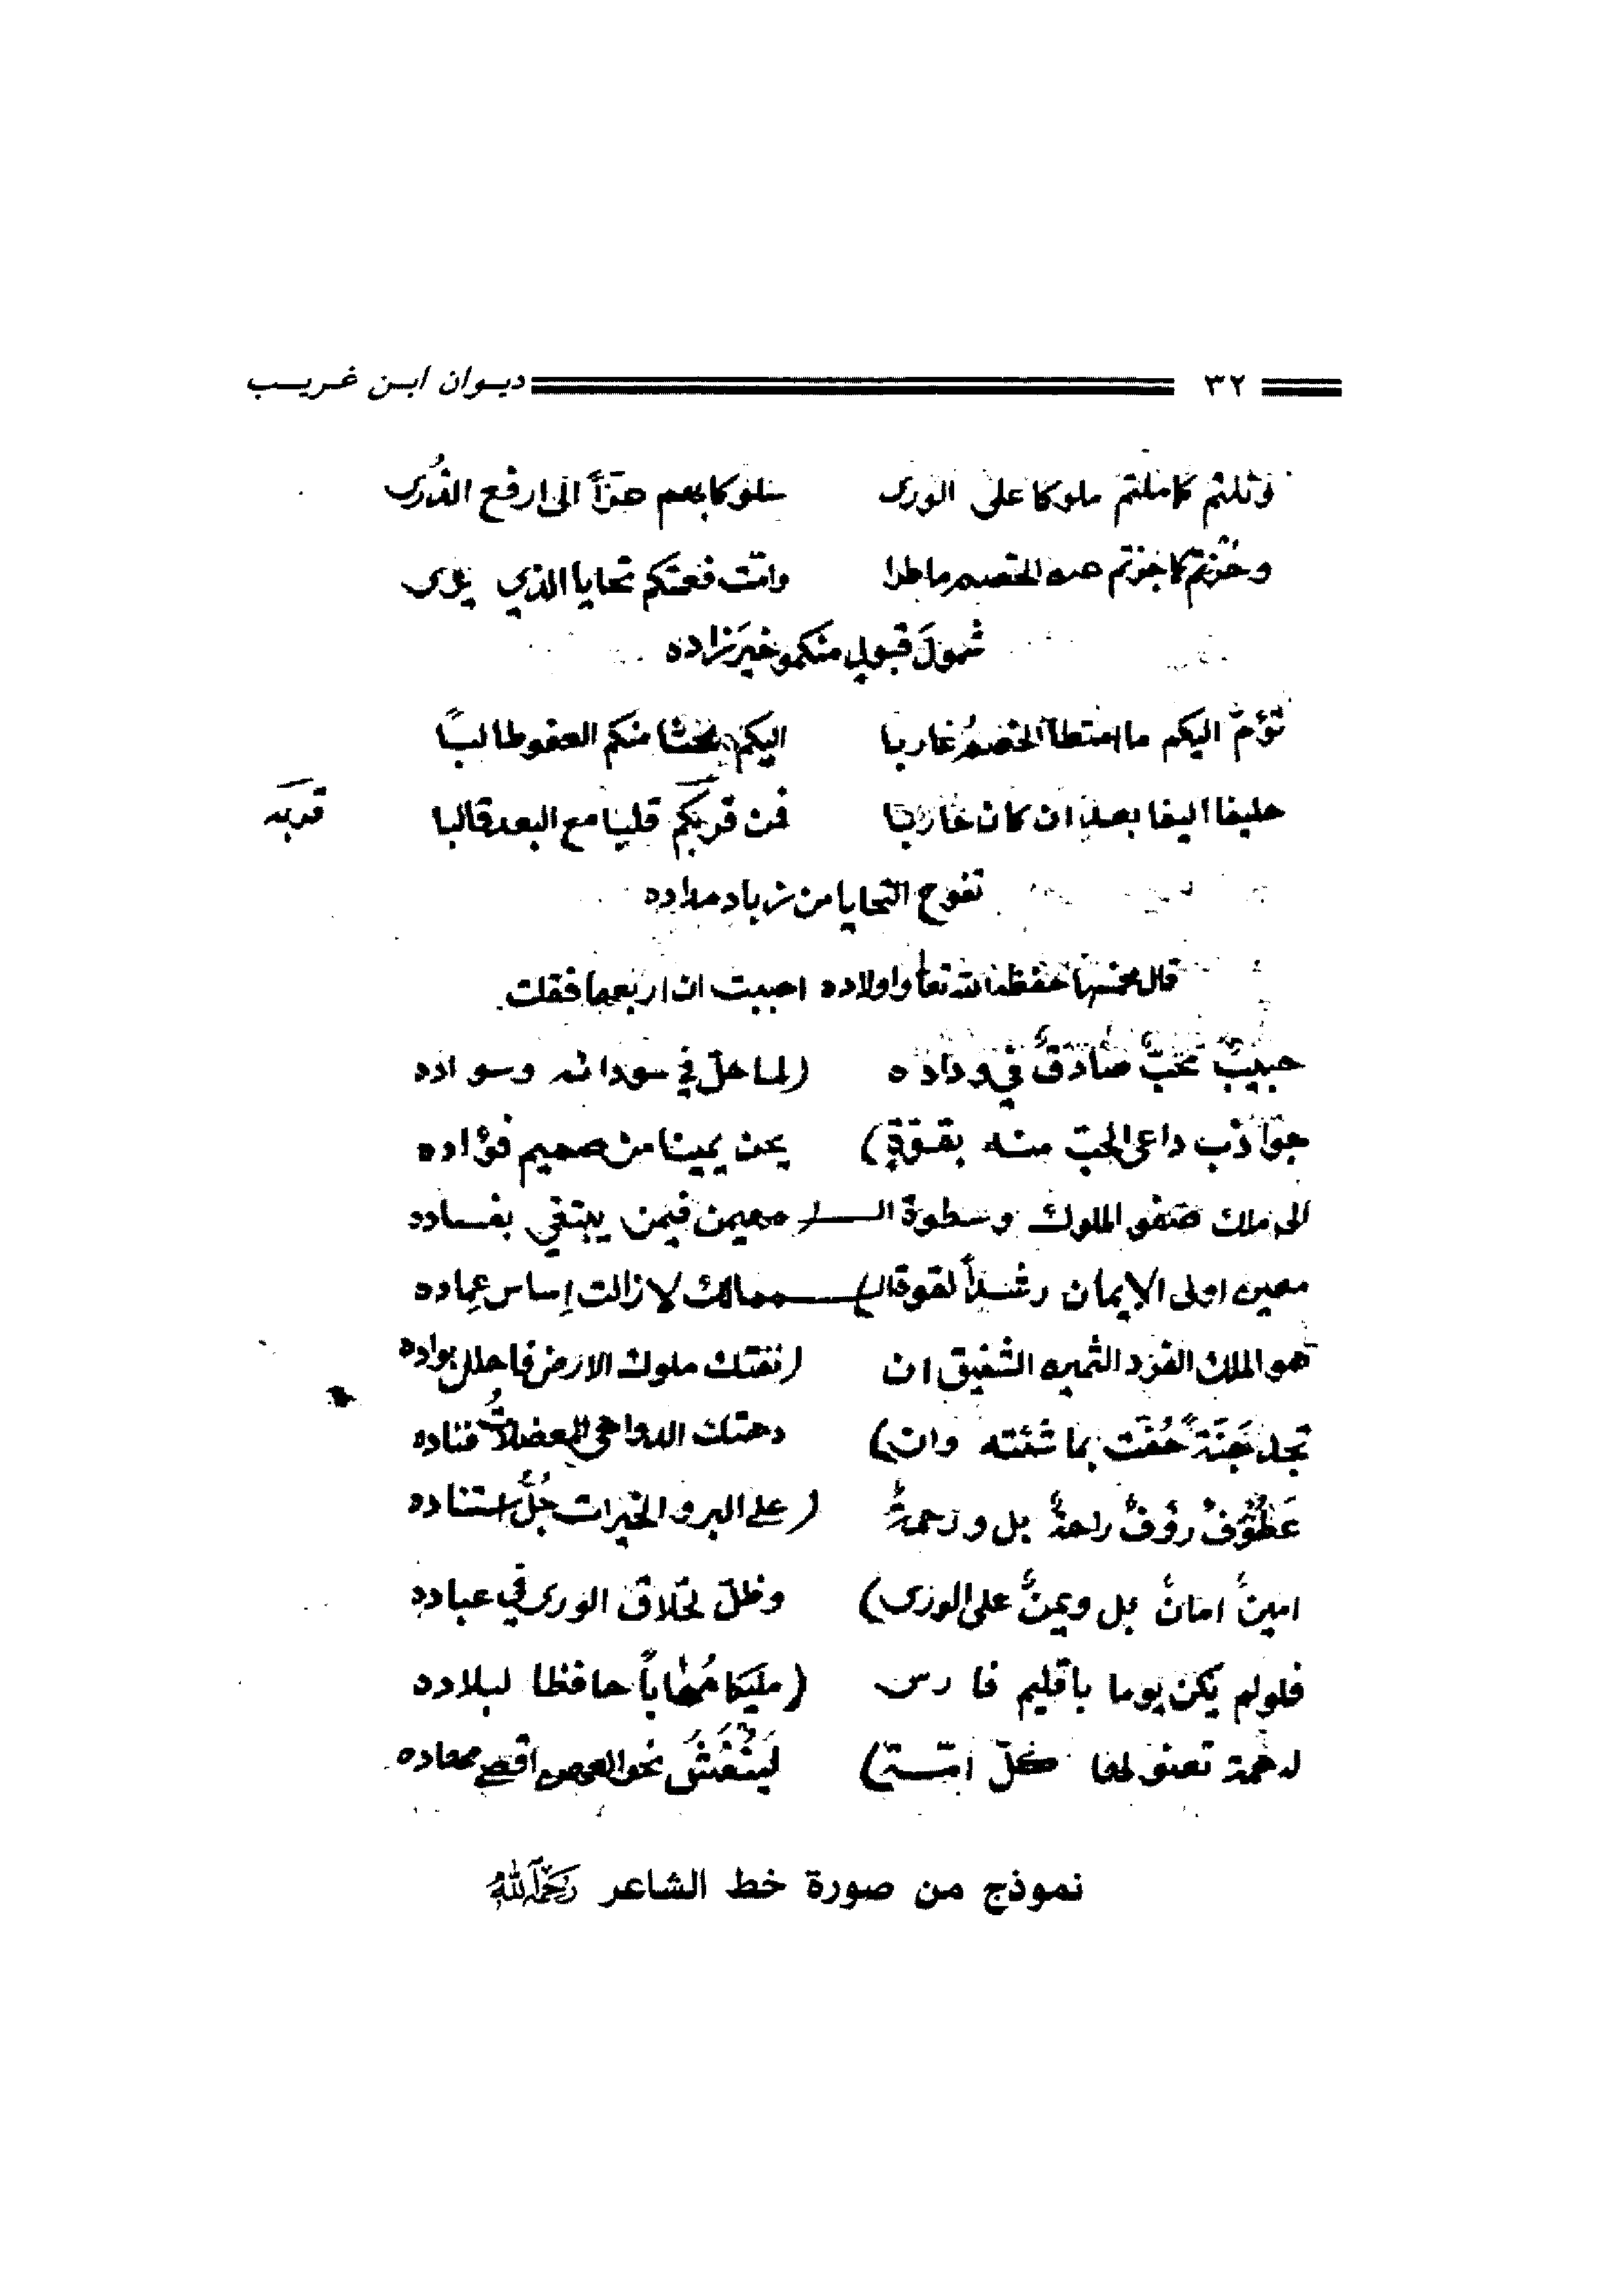 ٣٢ ديوان ابن غريب
ونلتم كما ملتم ملوكا على الورى سلوكا بهم عزاً الى ارفع الذُرى
وحزتم كما جزتم الخصم ما طرا وافت فعمتكم تحايا الذي يرى
شمولَ قبول منكمو خيرَ زاده
تؤم اليكم ما امتطا الخضمُ غاربا اليكم منكم العفو طالبًا
حليفا اليفا بعد ان كان غاربا فمن قربكم قلبا مع البعد قالبا
قربه
تفوح التحايا من زباد مداده
قال مخمسها حفظه الله تعا واولاده احببت ان اربعها فقلت
حبيبٌ محبٌ صادقٌ في وداده (لما حلّ في سودائه وسواده
جواذب داعى الحبّ منه بقوّةٍ) يحن يمينا من صميم فؤاده
الى ملك صفو الملوك وسطوة الـ ـمهيمن فيمن يبتغي بفساده
معين اولى الايمان رشداً لقوة الـ) ـممالك لا زالت إساس عماده
هو الملك الفرد الشفيق ان (نفتك ملوك الارض فاحلل بواده
تجد جَنَةً حُفَت بما شئته وان) دهتك الدواهى المعضلاتُ فناده
عَطُوفٌ رؤفٌ راحةٌ بل ورحمةٌ (على البر والخيرات جُلُّ استناده
امينٌ امانٌ بل ويمنٌ على الورى) وظلّ لخلاق الورى في عباده
فلو لم يكن يوما باقليم فارس (مليكا مُهاباً حافظا لبلاده
له همة تعنو لها كلّ امّةٍ) نحو اقصى معاده
نموذج من صورة خط الشاعر رَحِمَهُ اللهُ